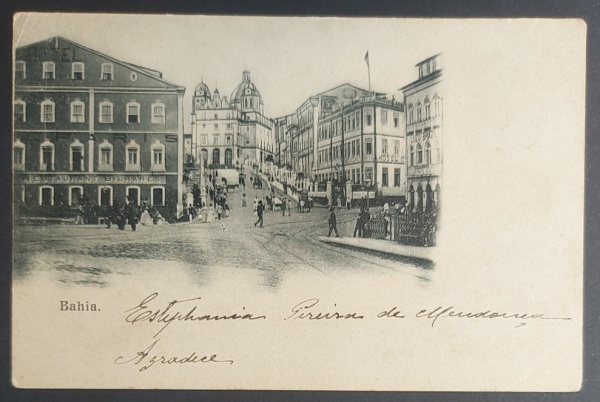 HOTEL
RESTAURANT BILHARES
Bahia.
Estephania Pereira de Mendonça
Agradece